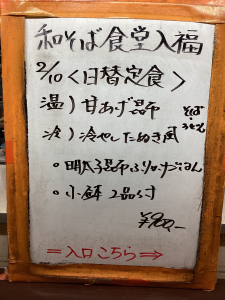 和そば食堂入福
2/10<日替定食>
温)甘あげ昆布
そば・うどん
冷)冷やしたぬき風
・明太子昆布ふりかけごはん
・小鉢2品付
¥900-
=入口こちら⇒